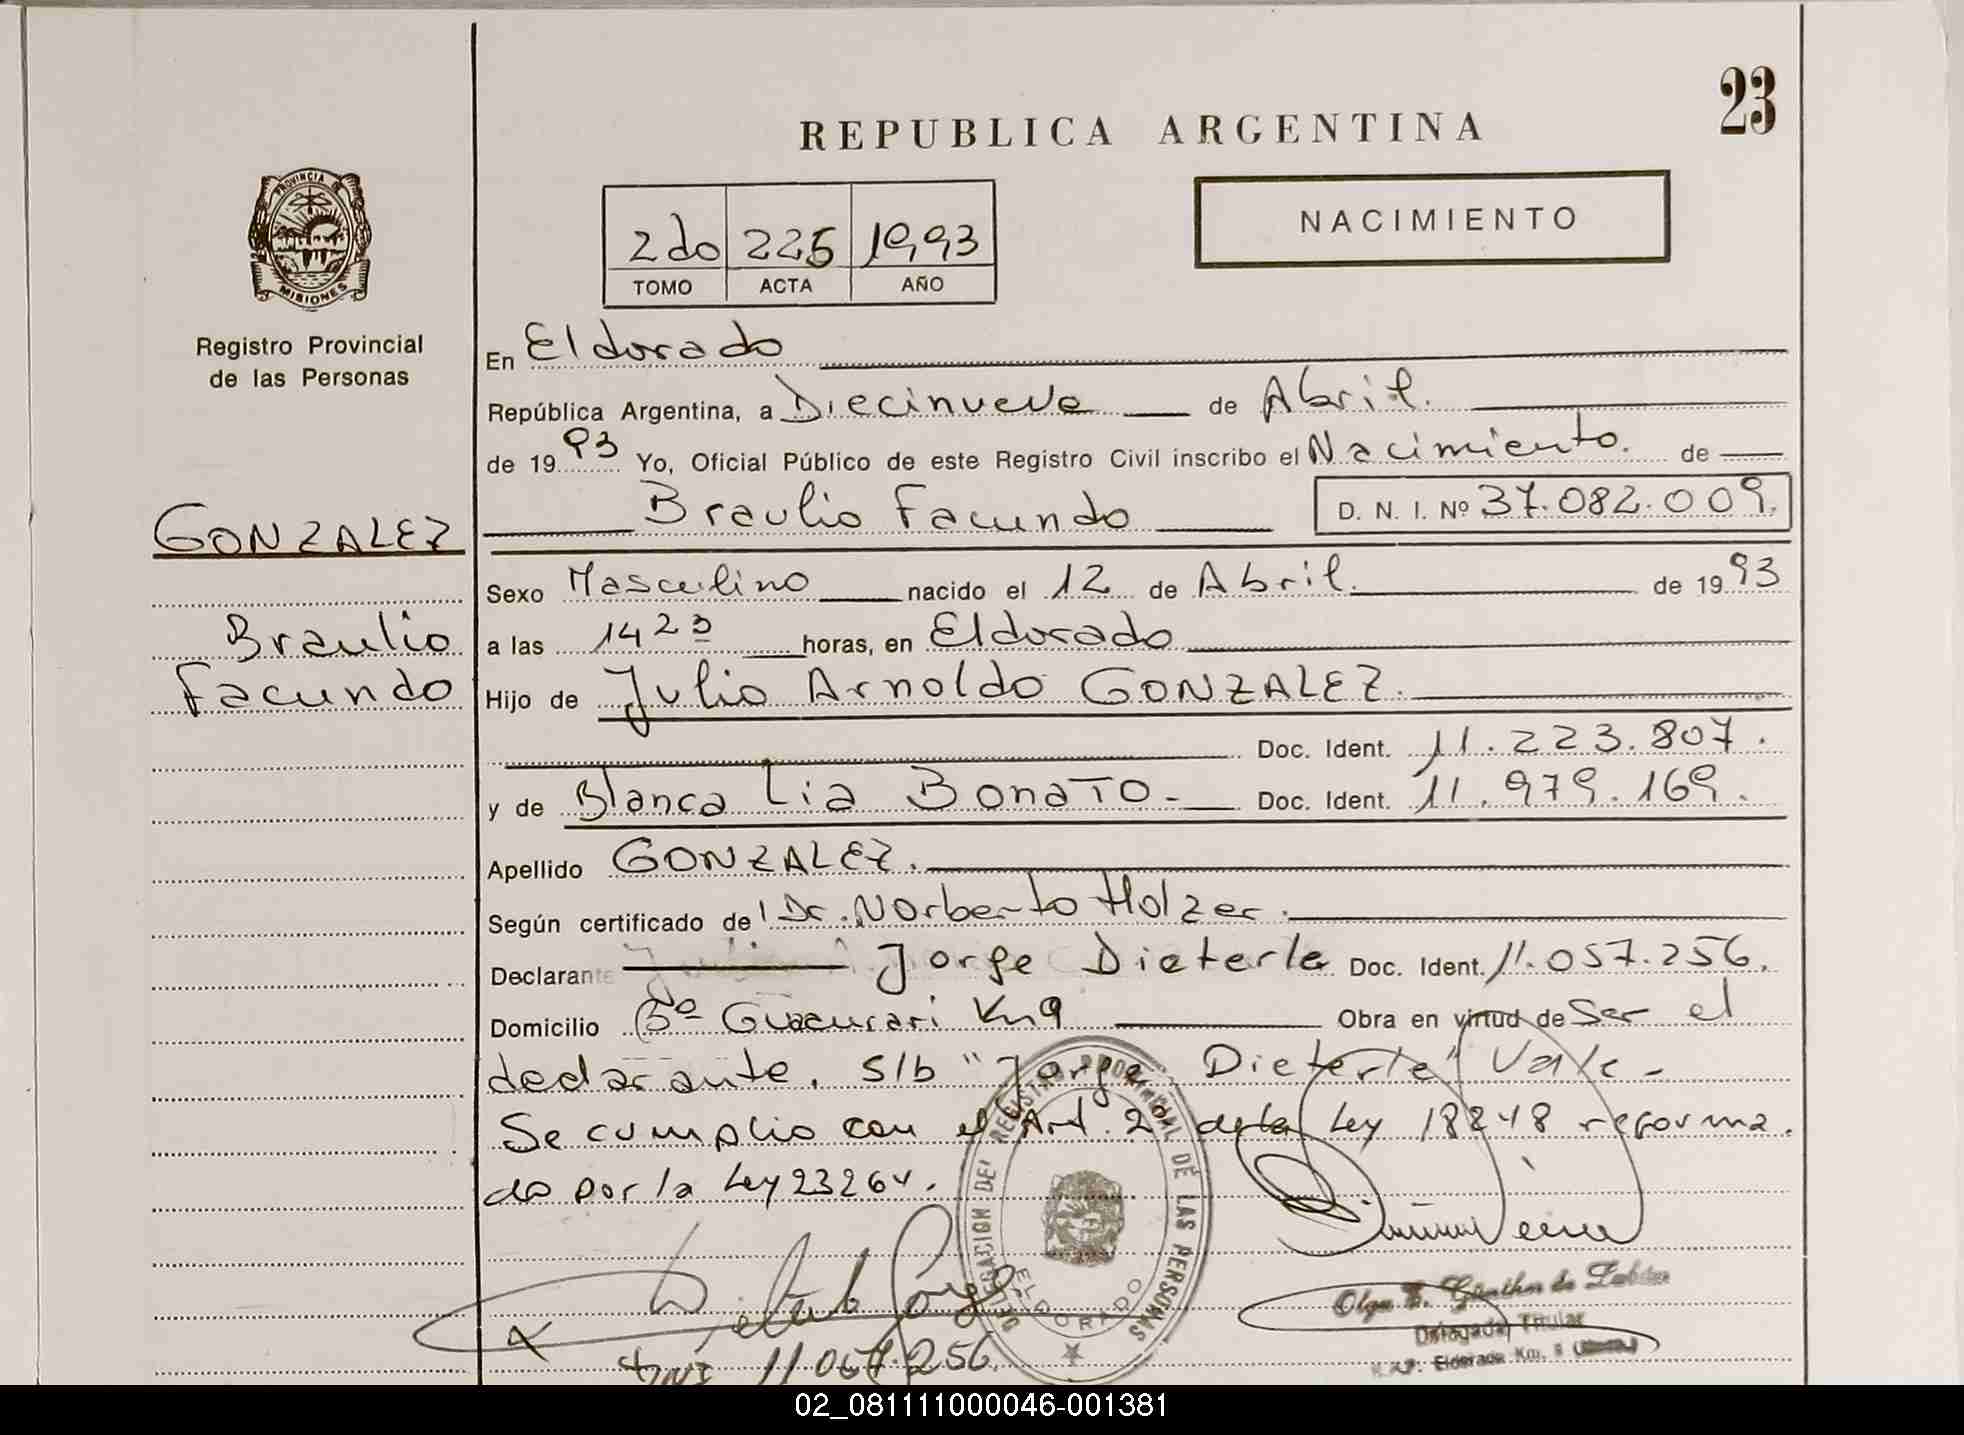 23
REPUBLICA ARGENTINA
PROVINCIA DE
MISIONES
Registro Provincial
de las Personas
2do 225 1993
TOMO ACTA AÑO
NACIMIENTO
En Eldorado
República Argentina, a Diecinueve de Abril.
de 1993 Yo, Oficial Público de este Registro Civil inscribo el Nacimiento. de
Braulio Facundo D. N. I. Nº 37.082.009.
GONZALEZ
Braulio
Facundo
Sexo Masculino nacido el 12 de Abril. de 1993
a las 14 23 horas, en Eldorado
Hijo de Julio Arnoldo GONZALEZ.
Doc. Ident. 11.223.807.
y de Blanca Lia Bonato.- Doc. Ident. 11.979.169.
Apellido GONZALEZ.
Según certificado de Dr. Norberto Holzer.
Declarante Jorge Dieterle Doc. Ident. 11.057.256.
Domicilio Bº Guacurari Km 9 Obra en virtud de Ser el
declarante. S/b "Jorge Dieterle" Vale-
Se cumplio con el Art. 2º de la Ley 18248 reforma.
do por la Ley 23264.
DELEGACION DEL REGISTRO PROVINCIAL DE LAS PERSONAS
ELDORADO
DNI 11.057.256.
Olga E. Günther de
Delegada Titular
R.P.P. Eldorado Km. 9
02_081111000046-001381